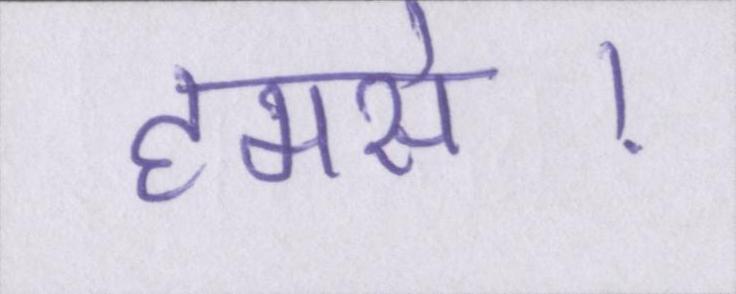 हमसे !